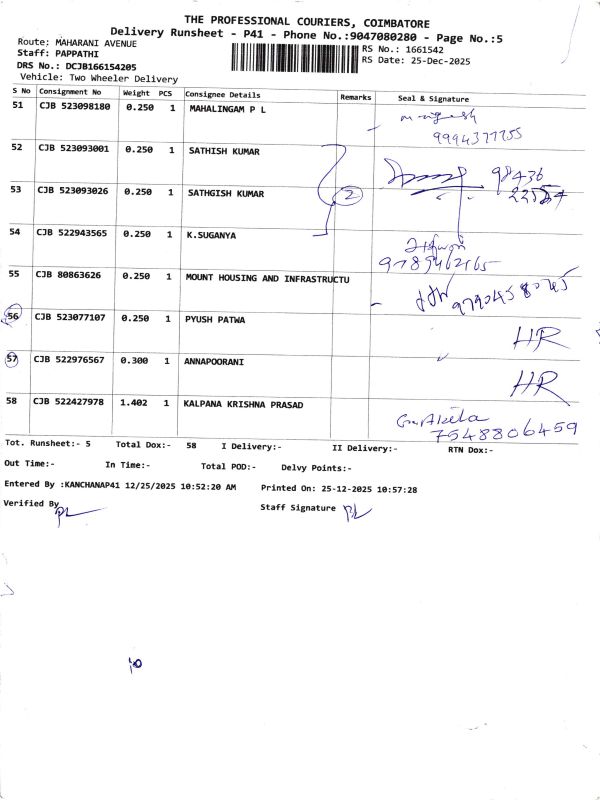 THE PROFESSIONAL COURIERS, COIMBATORE
Delivery Runsheet - P41 - Phone No.:9047080280 - Page No.:5
Route: MAHARANI AVENUE
Staff: PAPPATHI
DRS No.: DCJB166154205
Vehicle: Two Wheeler Delivery
RS No.: 1661542
RS Date: 25-Dec-2025
S No Consignment No Weight PCS Consignee Details Remarks Seal & Signature
51 CJB 523098180 0.250 1 MAHALINGAM P L
9994377755
52 CJB 523093001 0.250 1 SATHISH KUMAR
98436
53 CJB 523093026 0.250 1 SATHGISH KUMAR 2
54 CJB 522943565 0.250 1 K.SUGANYA
9789462165
55 CJB 80863626 0.250 1 MOUNT HOUSING AND INFRASTRUCTU
56 CJB 523077107 0.250 1 PYUSH PATWA HR
57 CJB 522976567 0.300 1 ANNAPOORANI HR
58 CJB 522427978 1.402 1 KALPANA KRISHNA PRASAD
7548806459
Tot. Runsheet:- 5 Total Dox:- 58 I Delivery:- II Delivery:- RTN Dox:-
Out Time:- In Time:- Total POD:- Delvy Points:-
Entered By :KANCHANAP41 12/25/2025 10:52:20 AM Printed On: 25-12-2025 10:57:28
Verified By
Staff Signature